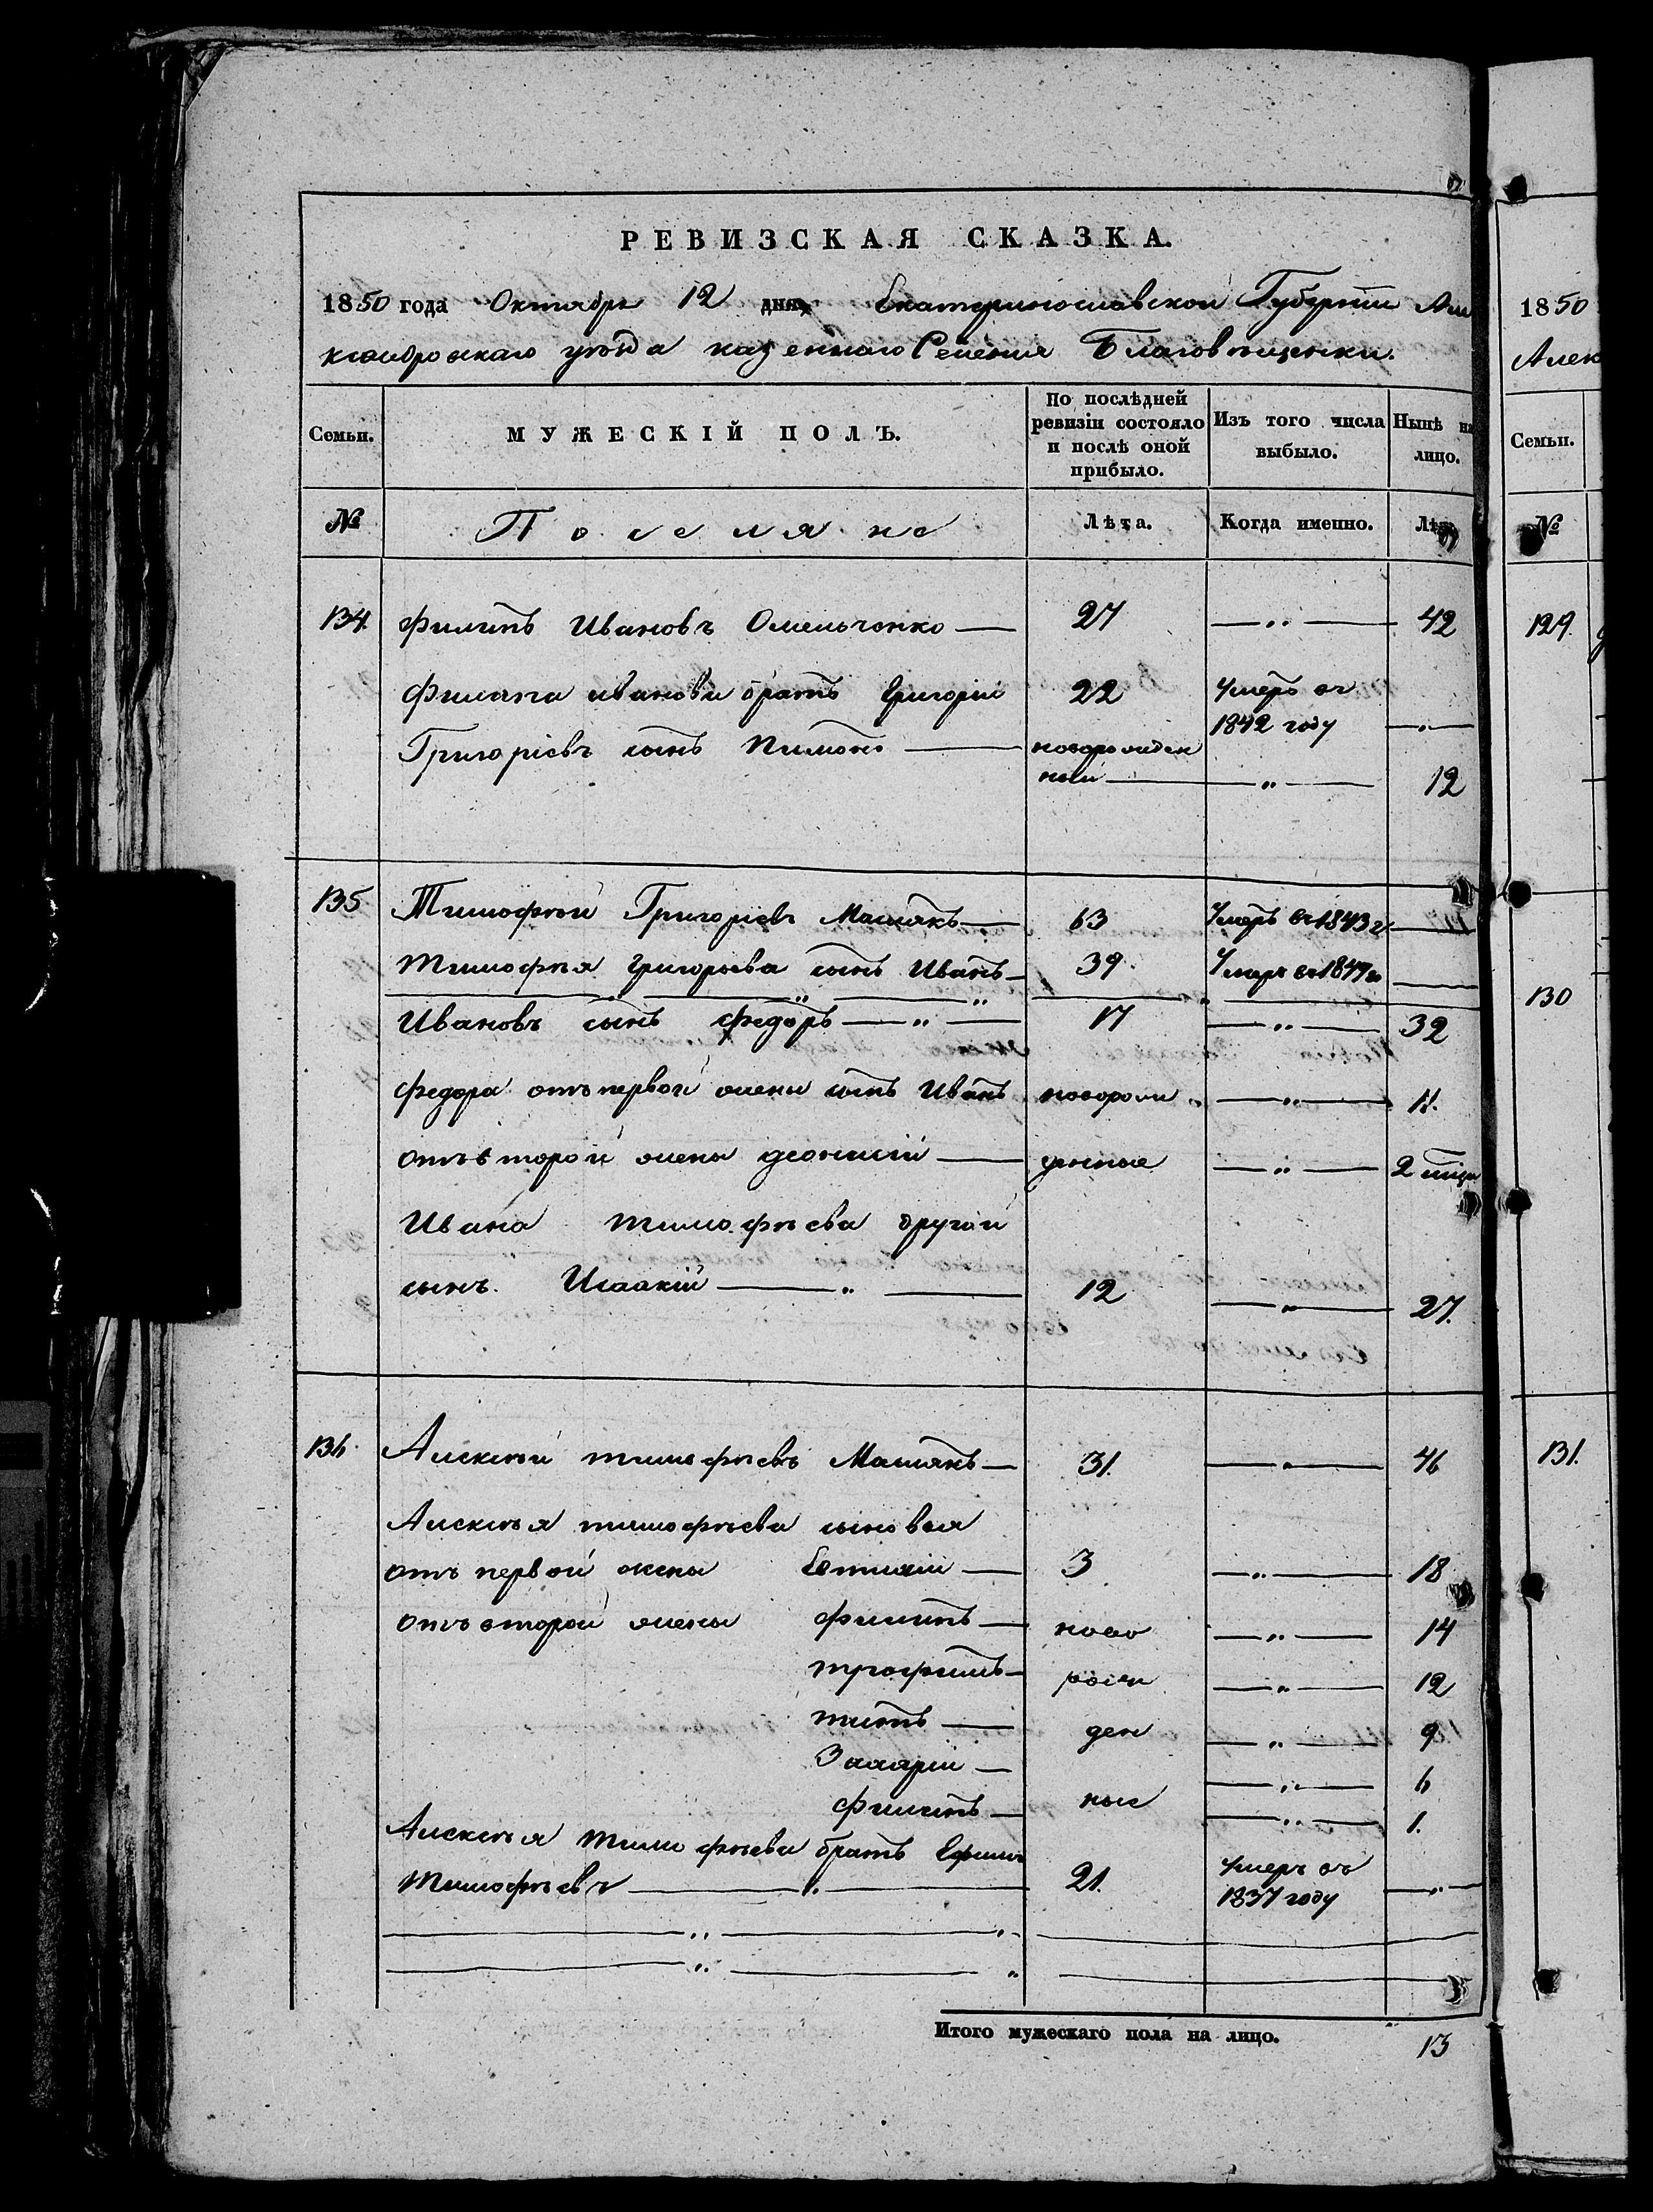 РЕВИЗСКАЯ СКАЗКА.
1850 года Октября 12 дня Екатеринославской Губернiи Але
ксандровскаго уѣзда казеннаго Селенiя Благовѣщенки.
Семьи. МУЖЕСКІЙ ПОЛЪ. По послѣдней ревизіи состояло и послѣ оной прибыло. Изъ того числа выбыло. Нынѣ на лицо.
№ Поселяне Лѣта. Когда именно. Лѣта
134. Филипъ Ивановъ Омельченко — 27 — „ — 42
Филипа иванова братъ Григорiй 22 Умеръ въ 1842 году — „ —
Григорiевъ сынъ Пимонъ — новорожден
ный — „ — 12
135 Тимофѣй Григорiевъ Машякъ — 63 Умеръ въ 1843 г —
Тимофѣя Григорьева сынъ Иванъ — 39. Умеръ въ 1847 го —
Ивановъ сынъ Федоръ — „ — 17 — „ — 32
Федора отъ первой жены сынъ Иванъ новорож — „ — 11.
отъ второй жены деонисiй — денные — „ — 2 мѣця
Ивана тимофѣева другой
сынъ. Исаакiй — „ — 12 — „ — 27.
136. Алексѣй тимофѣевъ Машякъ — 31. — „ — 46
Алексѣя тимофѣева сыновья
отъ первой жены Евтихiй — 3 — „ — 18
отъ второй жены Филипъ — ново — „ — 14
трофимъ — рож — „ — 12
титъ — ден — „ — 9
Захарiй — — „ — 6
Филипъ — ные — „ — 1.
Алексѣя тимофѣева братъ Ефимъ
тимофѣевъ — „ — 21. Умеръ въ 1837 году — „ —
Итого мужескаго пола на лицо. 13
1850
Алек
Семьи.
№
129.
130
131.